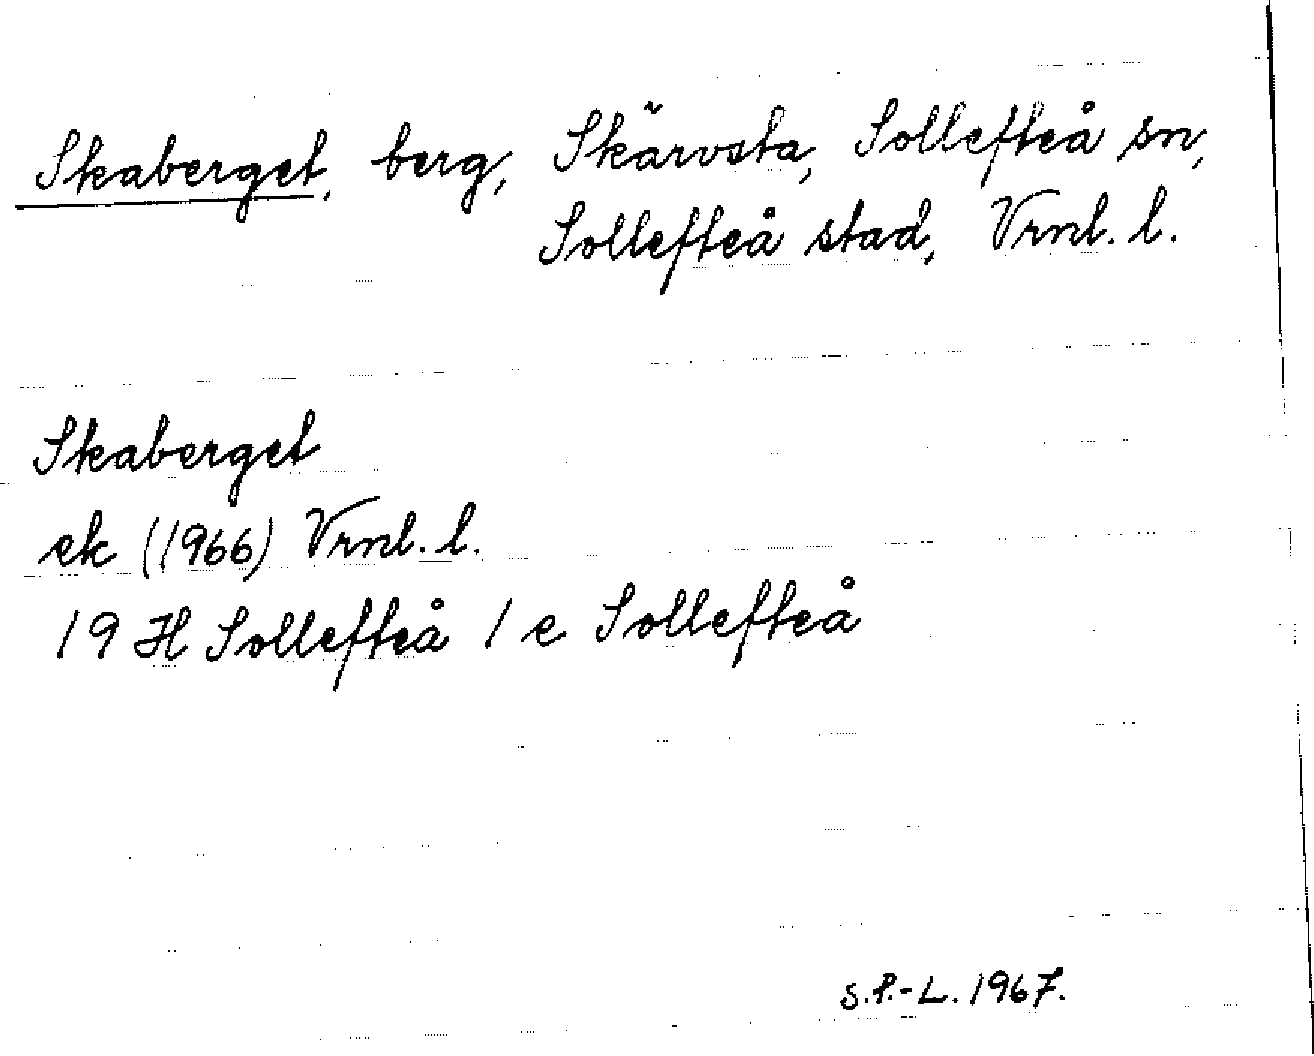 Skaberget, berg, Skärvsta, Sollefteå sn,
Sollefteå stad, Vrnl. l.
Skaberget
ek (1966) Vrnl. l.
19 H Sollefteå 1 e Sollefteå
S.P.-L. 1967.